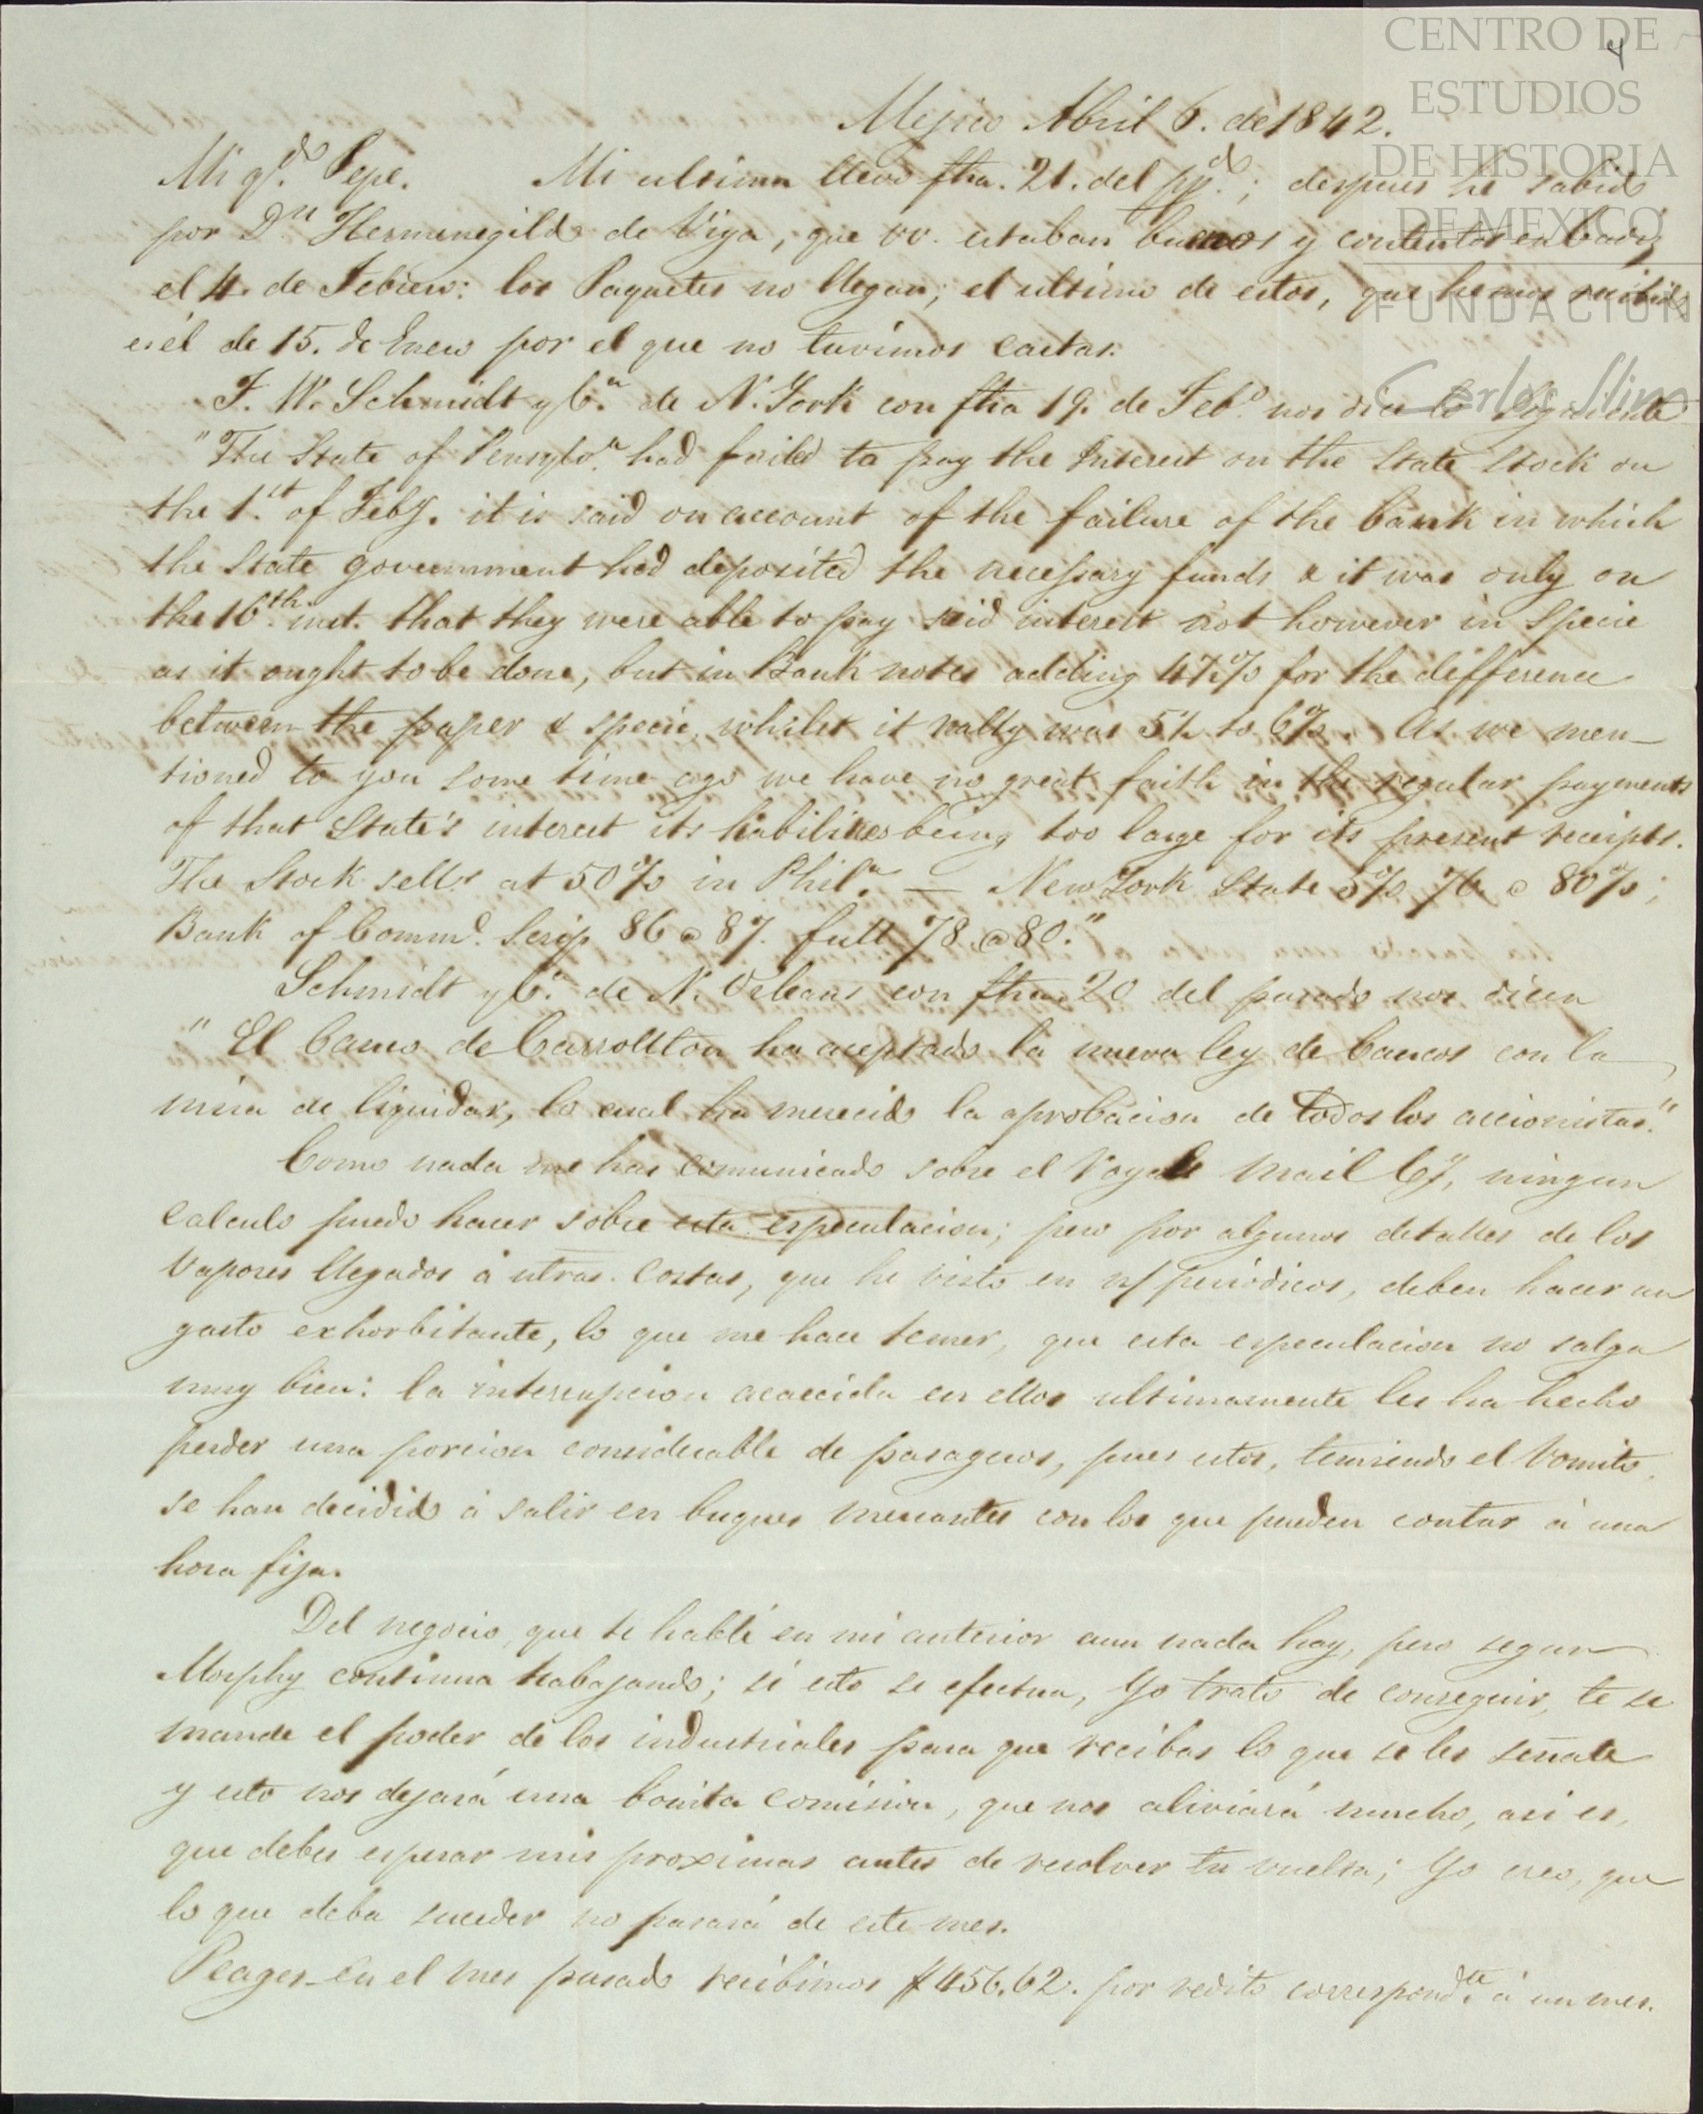 CENTRO DE
ESTUDIOS
DE HISTORIA
DE MEXICO
FUNDACION
Carlos Slim
4
Mejico Abril 6. de 1842.
Mi q.do Pepe. Mi ultima llevó fha. 21. del pp.do; despues he sabido
por D.n Hermenegildo de Viya, que VV. estaban buenos y contentos en Cadiz
el 4. de Febrero: los Paquetes no llegan; el ultimo de estos, que hemos recibido
es el de 15. de Enero por el que no tuvimos cartas.
F. W. Schmidt y C.a de N. York con fha 19. de Feb.o nos dice lo siguiente
"The State of Pensylv.a had failed to pay the Interest on the State Stock on
the 1.st of Feby. it is said on account of the failure of the bank in which
the State government had deposited the necessary funds & it was only on
the 16.th inst. that they were able to pay said interest not however in Specie
as it ought to be done, but in Bank notes adding 4½% for the difference
between the paper & specie, whilst it really was 5½ to 6%. As we men-
tioned to you some time ago we have no great faith in the regular payments
of that State's interest its liabilities being too large for its present receipts.
The Stock sells at 50% in Phil.a — New York State 5% 76 @ 80%;
Bank of Comm.e Scrip 86 @ 87. full 78 @ 80."
Schmidt y C.a de N. Orleans con fha. 20 del pasado nos dicen
"El banco de Carrollton ha aceptado la nueva ley de bancos con la
mira de liquidar, lo cual ha merecido la aprobacion de todos los accionistas."
Como nada me has comunicado sobre el Royal Mail Cy, ningun
calculo puedo hacer sobre esta especulacion; pero por algunos detalles de los
Vapores llegados á ntras. Costas, que he visto en n/ periodicos, deben hacer un
gasto exhorbitante, lo que me hace temer, que esta especulacion no salga
muy bien: la interrupcion acaecida en ellos ultimamente les ha hecho
perder una porcion considerable de pasageros, pues estos, temiendo el Vomito,
se han decidido á salir en buques mercantes con los que pueden contar á una
hora fija.
Del negocio, que te hablé en mi anterior aun nada hay, pero segun
Morphy continua trabajando; si esto se efectua, Yo trato de conseguir, te se
mande el poder de los industriales para que recibas lo que se les señale
y esto nos dejará una bonita comision, que nos aliviará mucho, asi es,
que debes esperar mis proximas antes de resolver tu vuelta; Yo creo, que
lo que deba suceder no pasará de este mes.
Peages - En el mes pasado recibimos $456.62. por redito correspond.te á un mes.